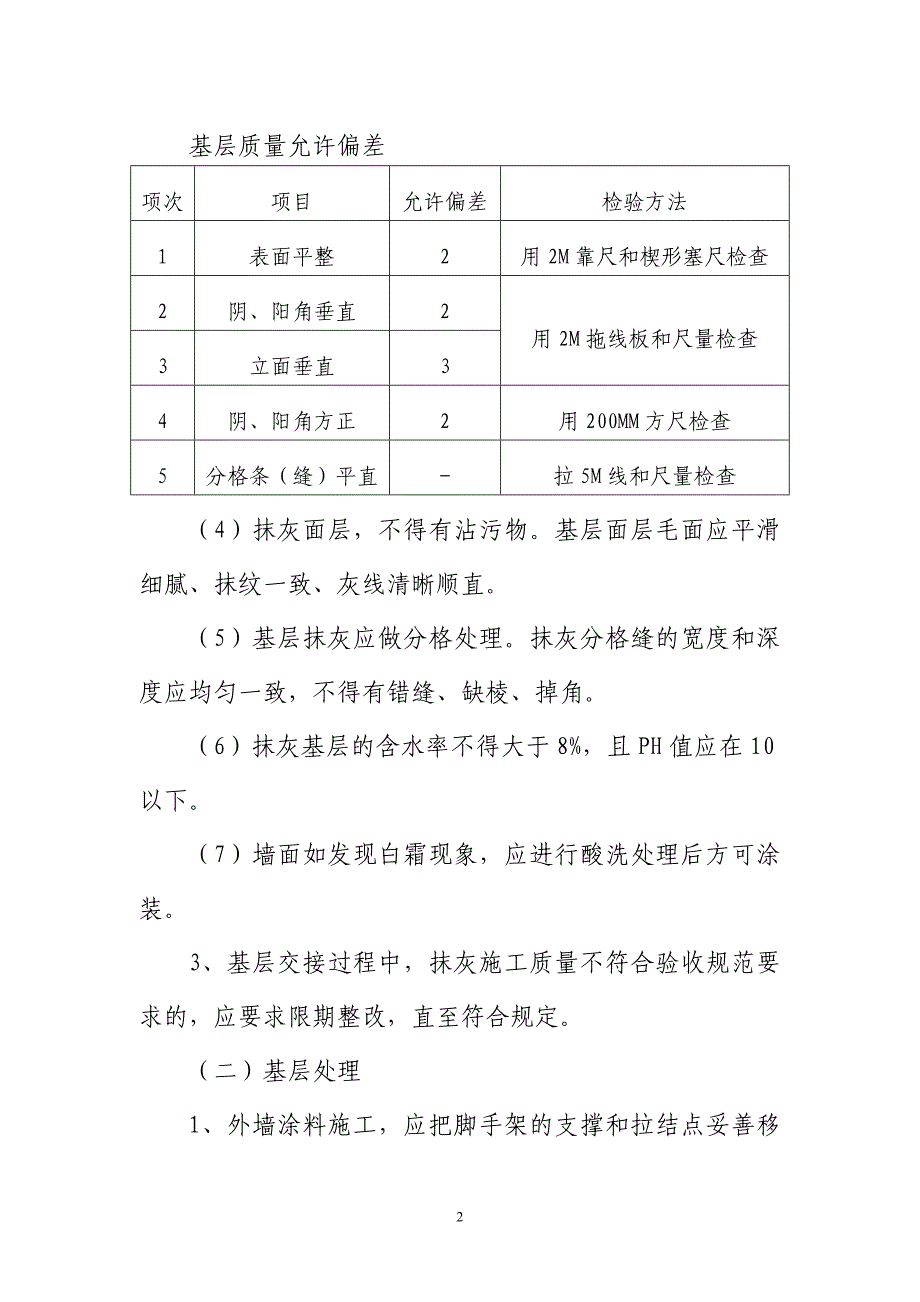 基层质量允许偏差
项次 项目 允许偏差 检验方法
1 表面平整 2 用2M靠尺和楔形塞尺检查
2 阴、阳角垂直 2 用2M拖线板和尺量检查
3 立面垂直 3
4 阴、阳角方正 2 用200MM方尺检查
5 分格条（缝）平直 － 拉5M线和尺量检查
（4）抹灰面层，不得有沾污物。基层面层毛面应平滑
细腻、抹纹一致、灰线清晰顺直。
（5）基层抹灰应做分格处理。抹灰分格缝的宽度和深
度应均匀一致，不得有错缝、缺棱、掉角。
（6）抹灰基层的含水率不得大于8%，且PH值应在10
以下。
（7）墙面如发现白霜现象，应进行酸洗处理后方可涂
装。
3、基层交接过程中，抹灰施工质量不符合验收规范要
求的，应要求限期整改，直至符合规定。
（二）基层处理
1、外墙涂料施工，应把脚手架的支撑和拉结点妥善移
2